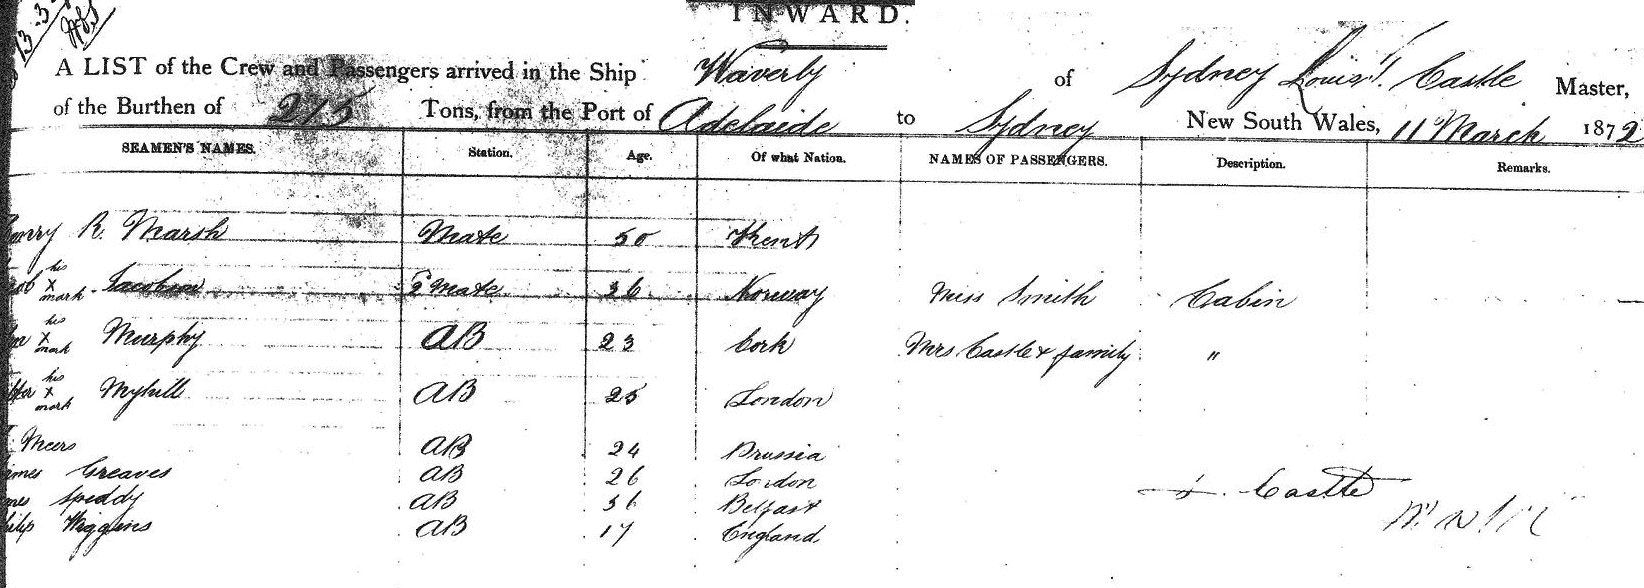 13.3
INWARD.
A LIST of the Crew and Passengers arrived in the Ship Waverly of Sydney Louis T. Castle Master,
of the Burthen of 275 Tons, from the Port of Adelaide to Sydney New South Wales, 11 March 1872
SEAMEN'S NAMES. Station. Age. Of what Nation. NAMES OF PASSENGERS. Description. Remarks.
R. Marsh Mate 50 Kent
his
x Jacobson 2 Mate 36 Norway Miss Smith Cabin
mark
his
x Murphy AB 23 Cork Mrs Castle & family "
mark
his
x Myhill AB 25 London
mark
Meers AB 24 Prussia
Greaves AB 26 London
Speddy AB 36 Belfast
Wiggins AB 17 England
Castle